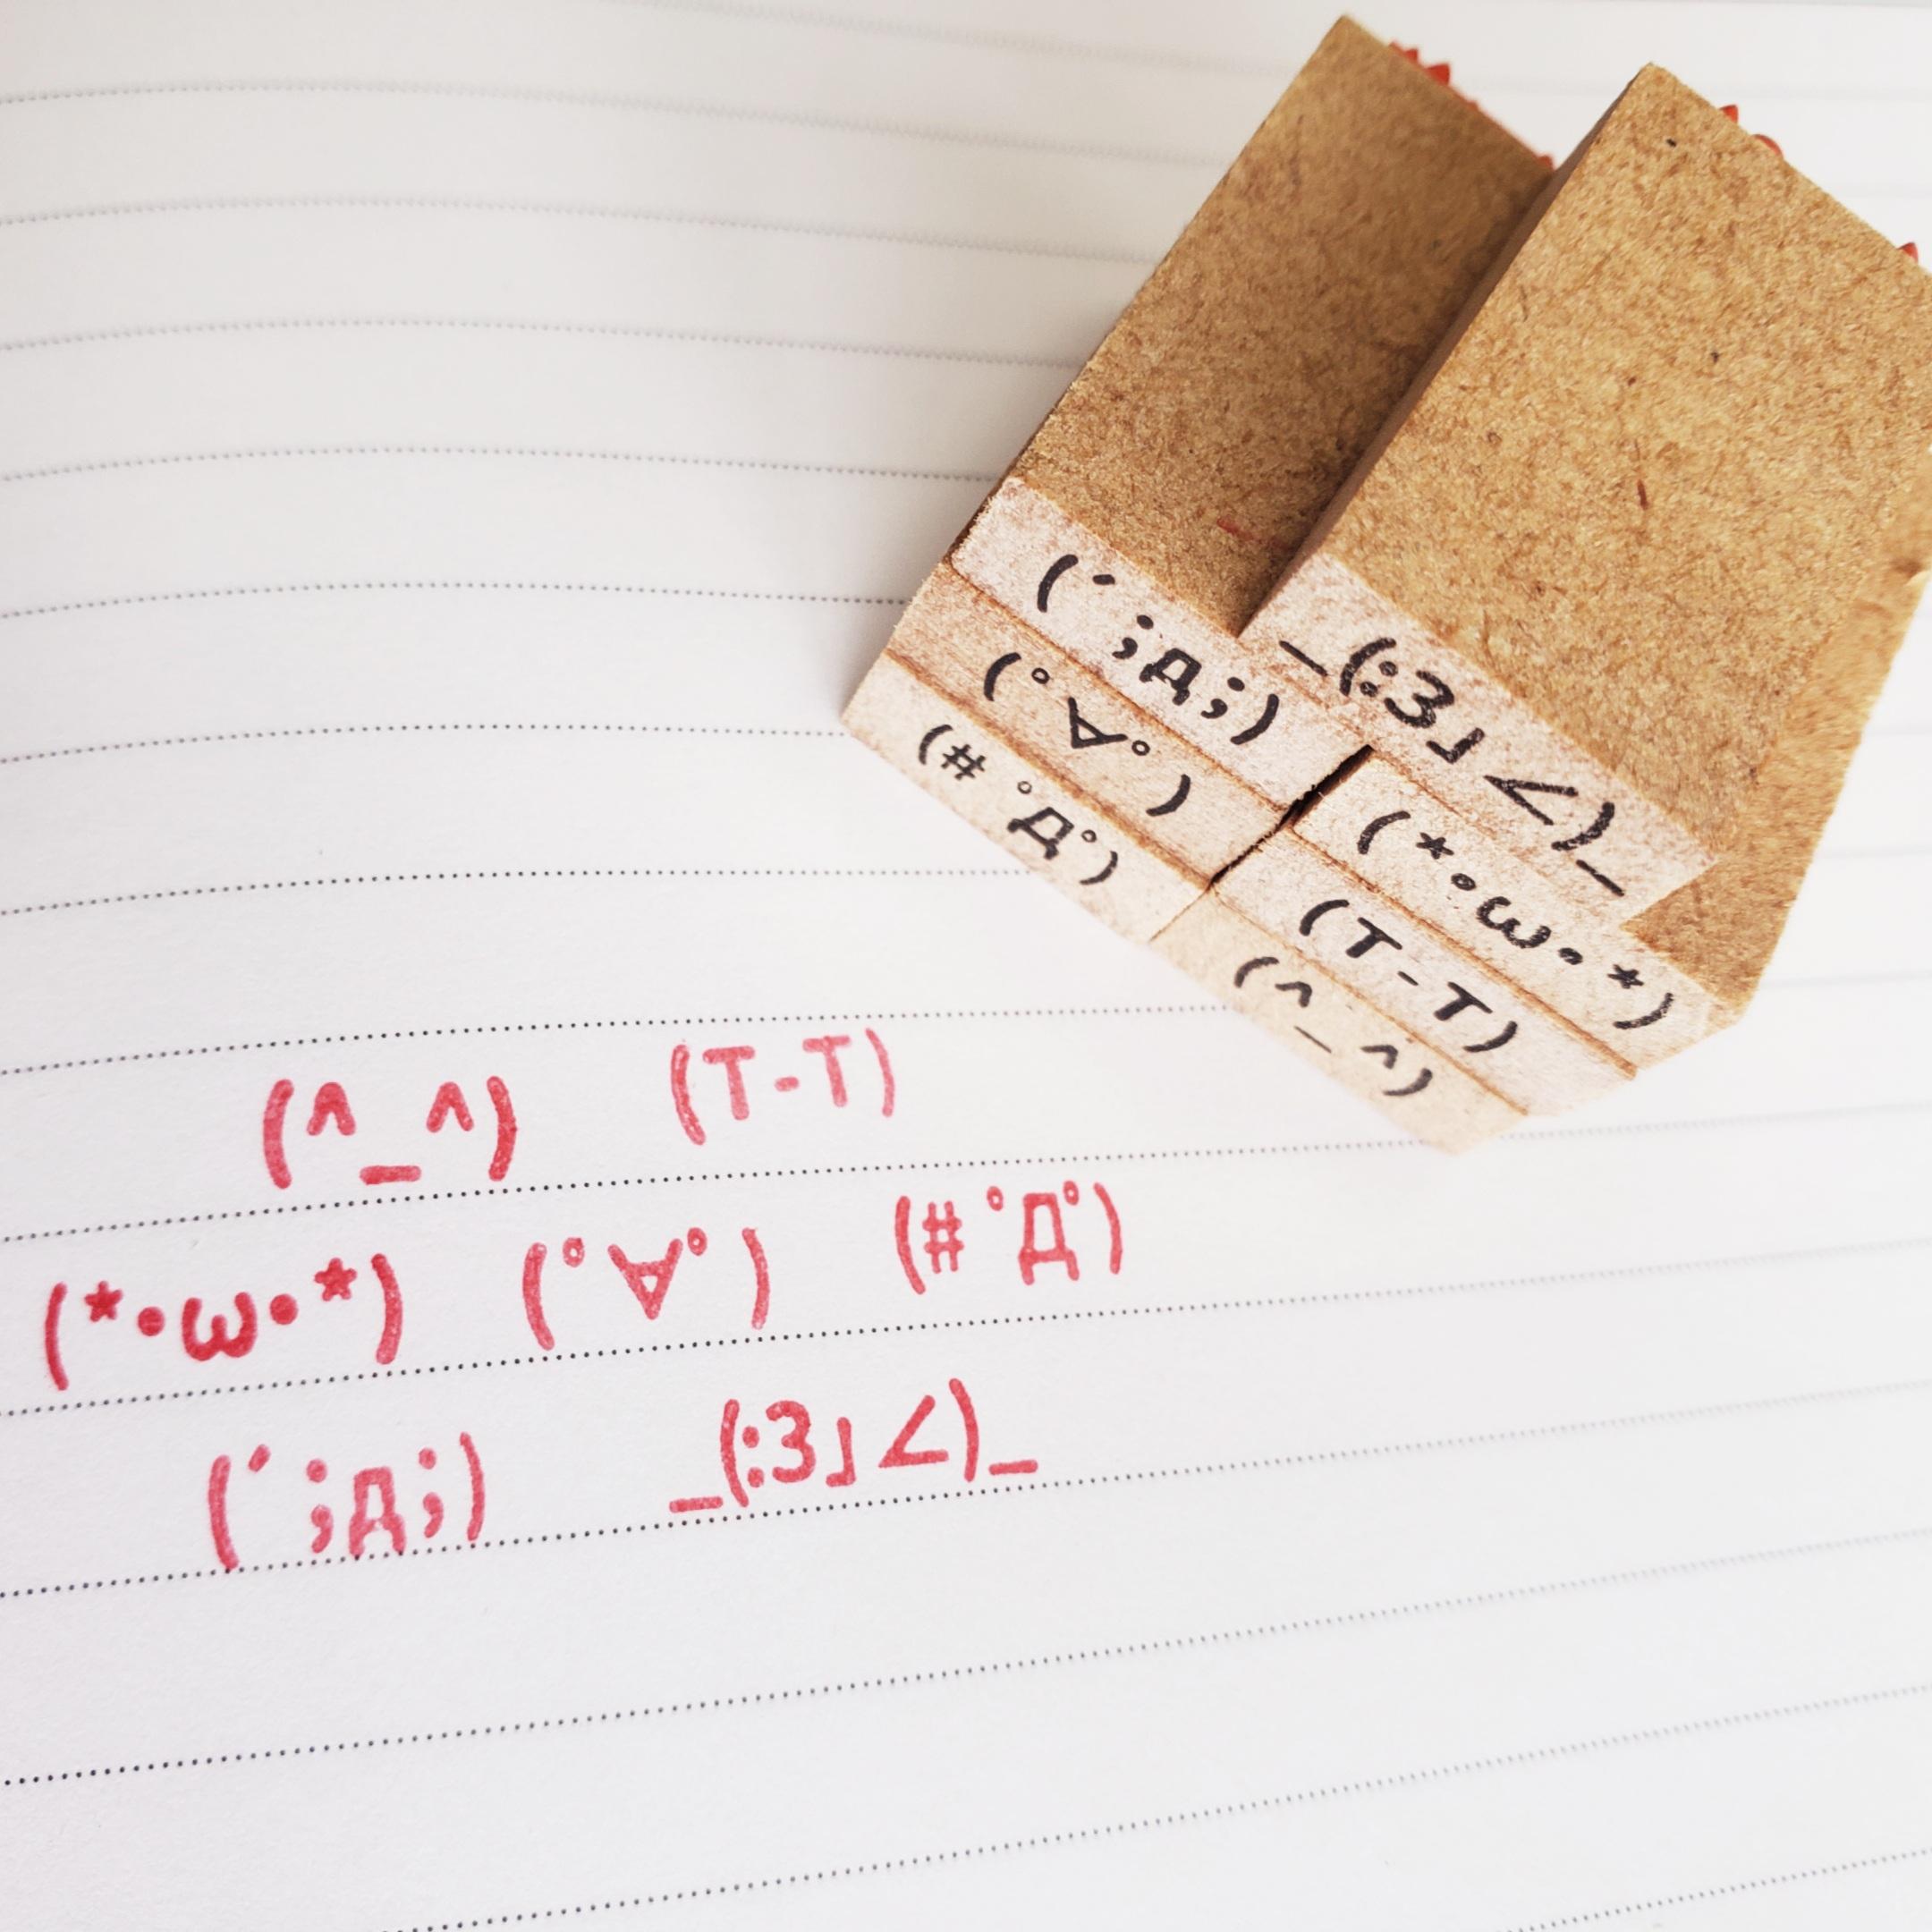 (´ ;д;)
_(:3」∠)_
(°∀° )
(*•ω•*)
(# ﾟДﾟ)
(T-T)
(^_^)
(^_^) (T-T)
(*•ω•*) (°∀° ) (# ﾟДﾟ)
(´ ;д;) _(:3」∠)_